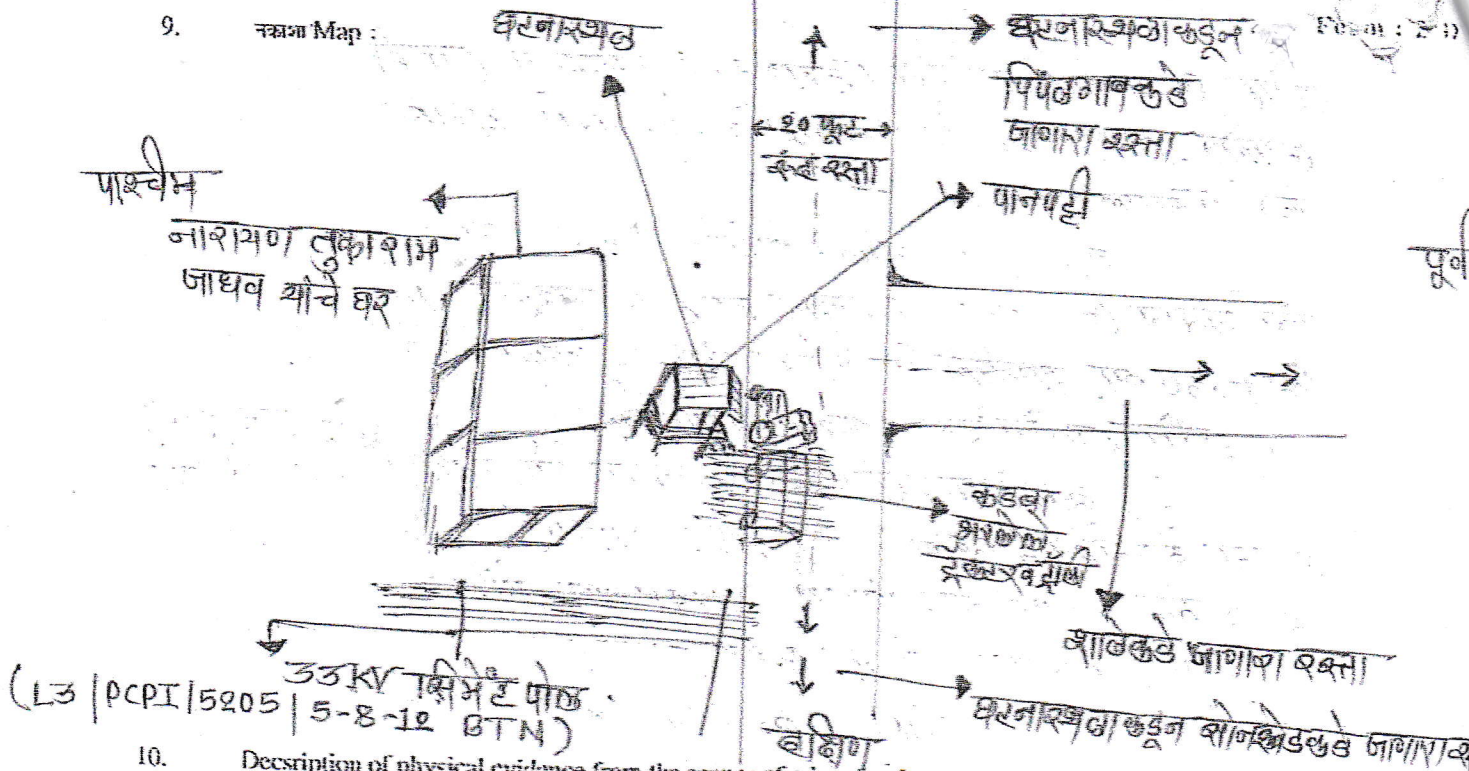 9. नकाशा Map :
घटनास्थळ
घटनास्थळाकडून
पिंपळगावकडे
जाणारा रस्ता
Form :
२० फूट
रुंद रस्ता
पानपट्टी
पाश्चीम
नारायण तुकाराम
जाधव यांचे घर
पूर्व
कडबा
भरलेले
ट्रॅक्टर व ट्रॉली
शाळेकडे जाणारा रस्ता
33KV सिमेंट पोल
(L3 | PCPI | 5205 | 5-8-12 BTN)
घटनास्थळाकडून सोनखेडकडे जाणारा
दक्षिण
10. Decsription of physical evidence from the